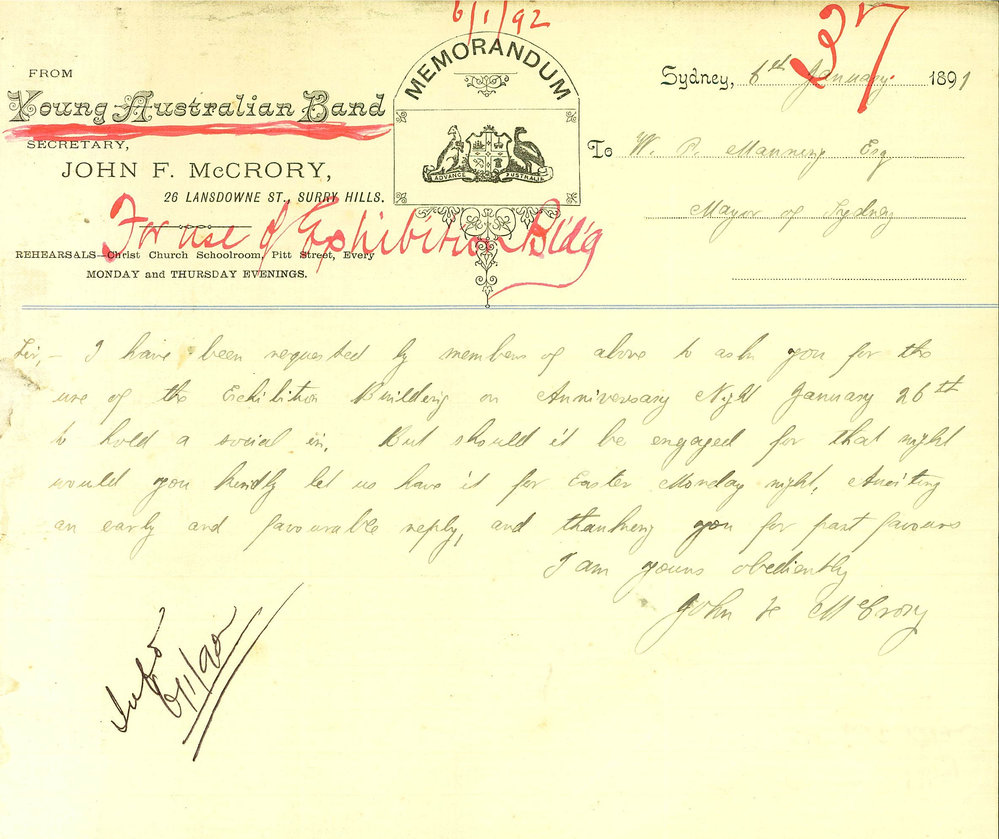 6/1/92
37
FROM
Young Australian Band
SECRETARY,
JOHN F. McCRORY,
26 LANSDOWNE ST., SURRY HILLS.
For use of Exhibition Bldg
REHEARSALS—Christ Church Schoolroom, Pitt Street, Every
MONDAY and THURSDAY EVENINGS.
MEMORANDUM
ADVANCE AUSTRALIA
Sydney, 6th January 1891
To W. P. Manning Esq
Mayor of Sydney
Sir,- I have been requested by members of above to ask you for the
use of the Exhibition Building on Anniversary Night January 26th
to hold a social in. But should it be engaged for that night
would you kindly let us have it for Easter Monday night. Awaiting
an early and favourable reply, and thanking you for past favours
I am yours obediently
John F McCrory
6/1/92